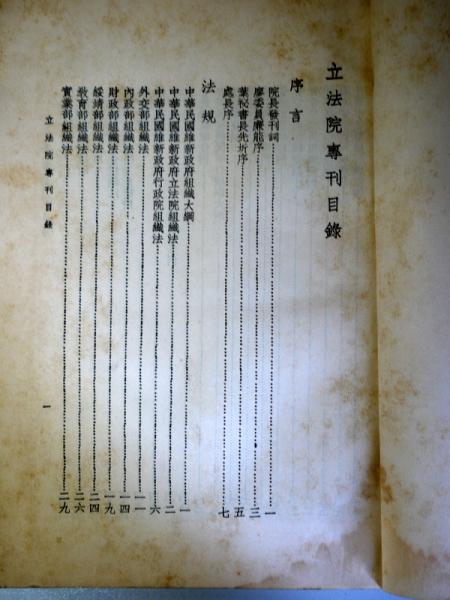 立法院專刊目錄
序言
院長發刊詞……一
廖委員廉能序……三
葉秘書長先圻序……五
處長序……七
法規
中華民國維新政府組織大綱……一
中華民國維新政府立法院組織法……二
中華民國維新政府行政院組織法……六
外交部組織法……一一
內政部組織法……一四
財政部組織法……一九
綏靖部組織法……二四
敎育部組織法……二六
實業部組織法……二九
立法院專刊目錄
一